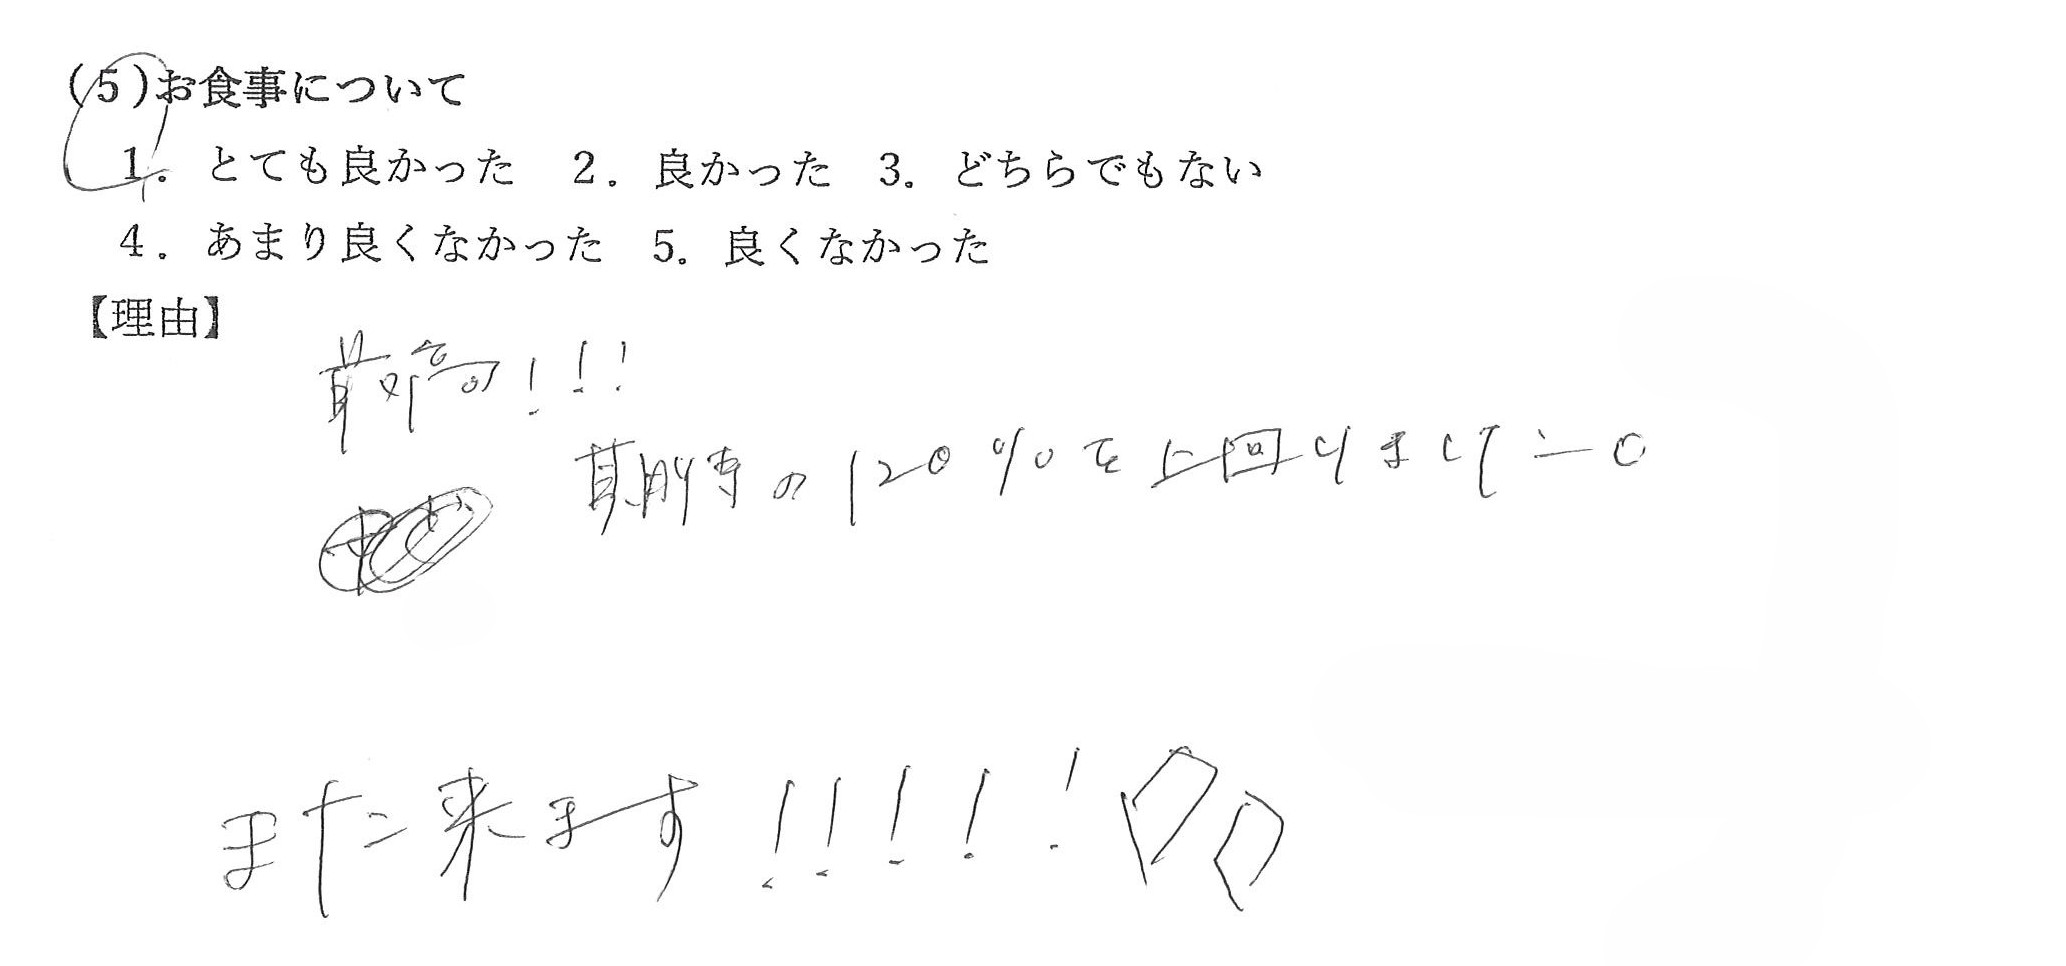 (5)お食事について
1. とても良かった 2. 良かった 3. どちらでもない
4. あまり良くなかった 5. 良くなかった
【理由】
最高!!!
の120%を上回りました。
また来ます!!!!!